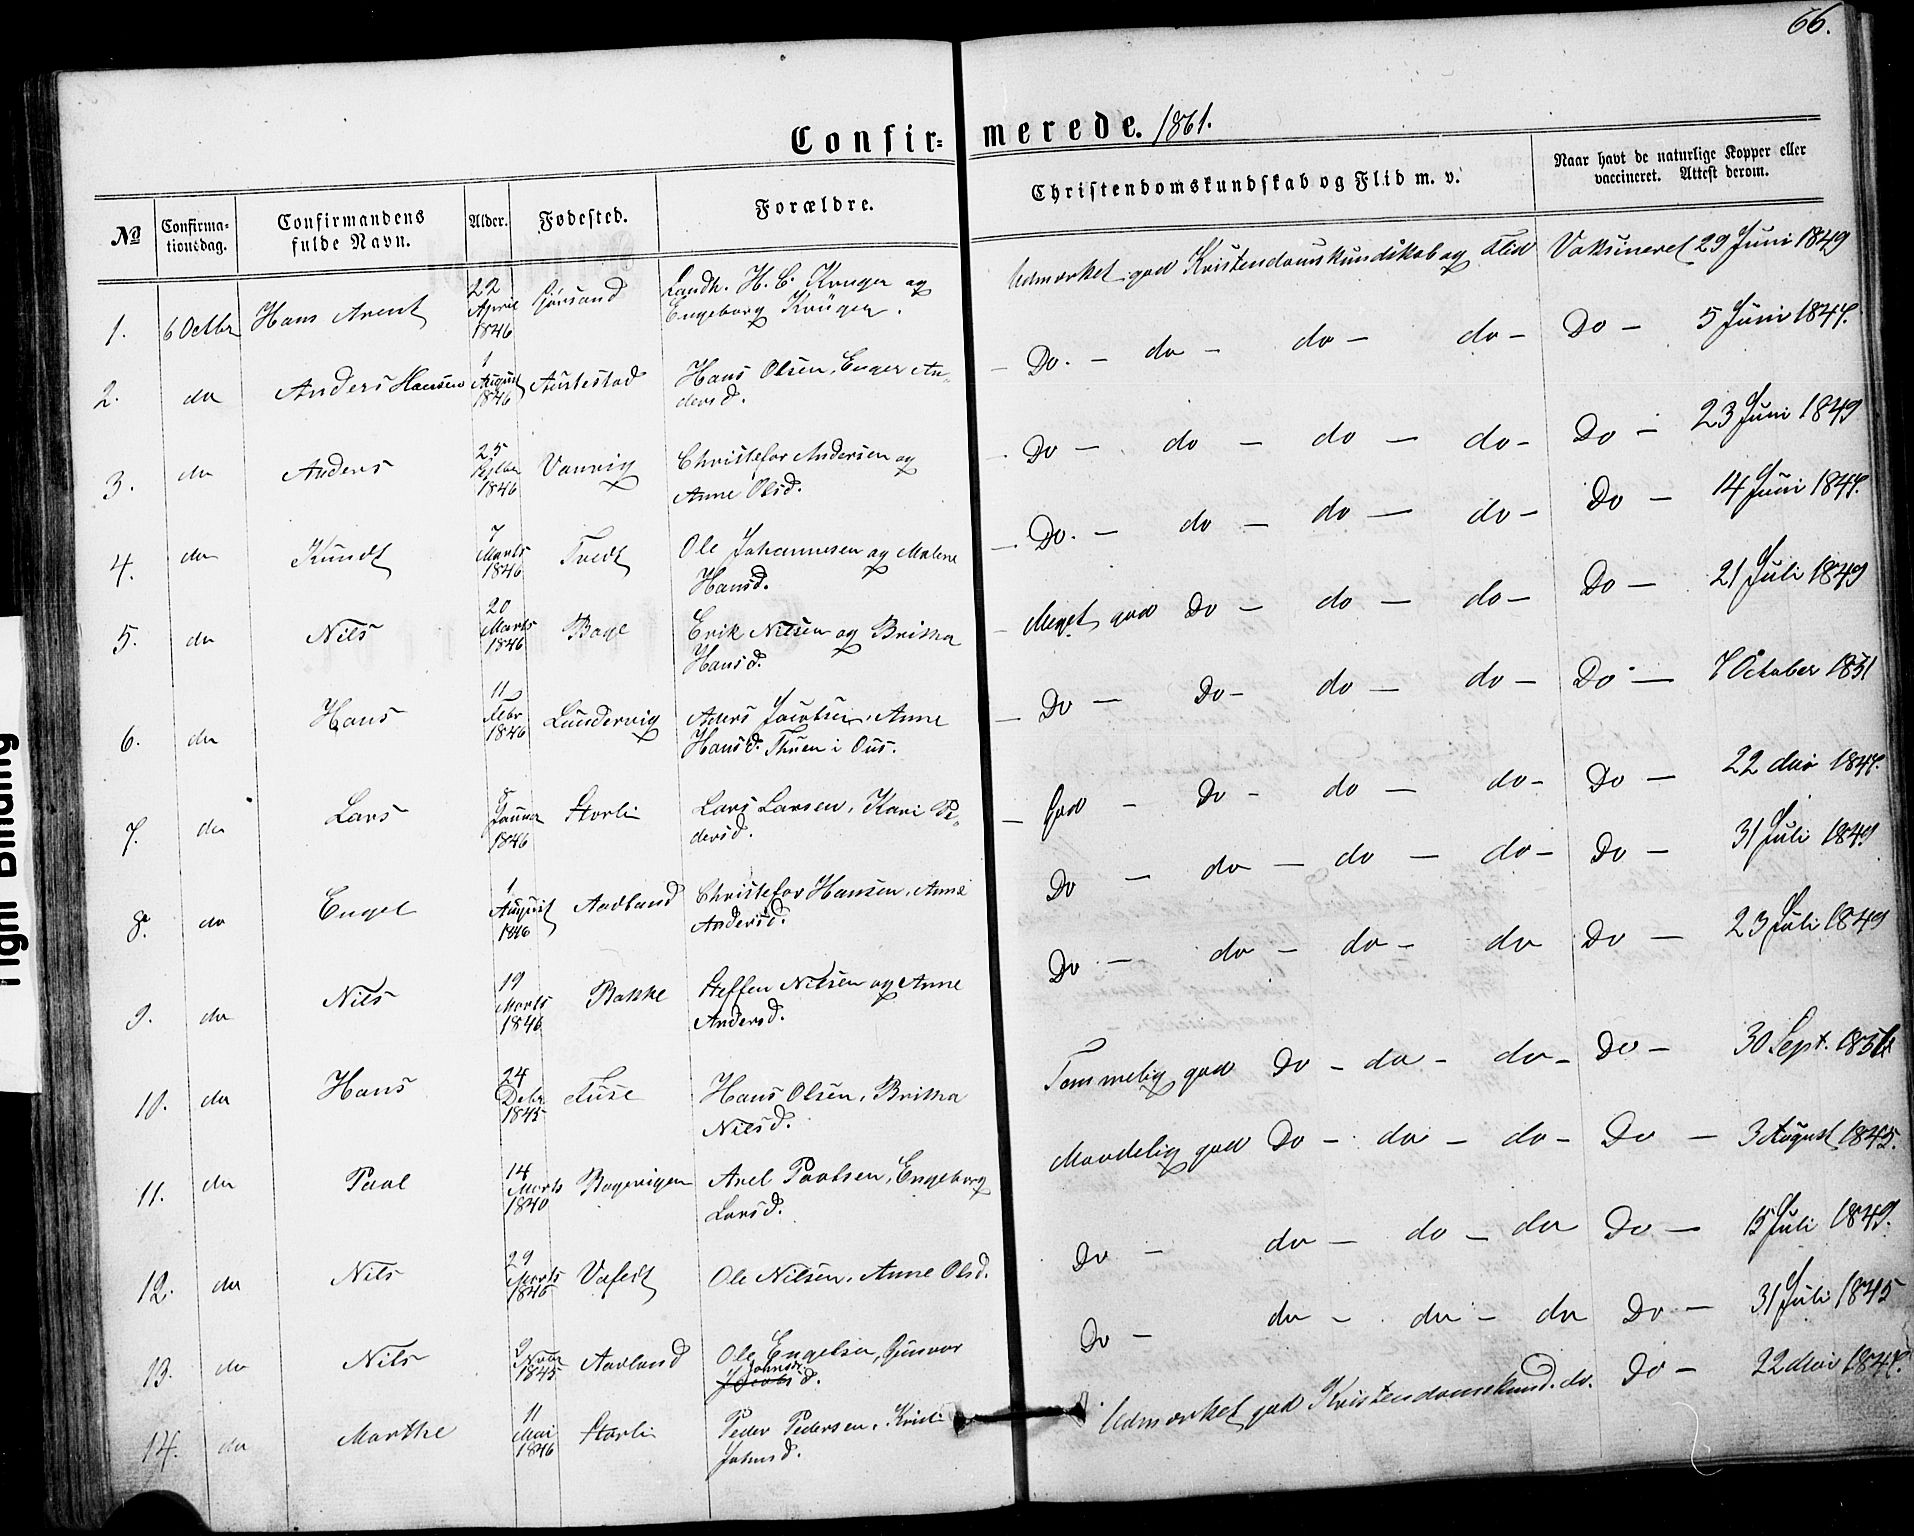 66.
Confir= merede. 1861.
No Confirma-tionsdag. Confirmandens fulde Navn. Alder. Fødested. Forældre. Christendomskundskab og Flid m. v. Naar havt de naturlige Kopper eller vaccineret. Attest derom.
1. 6 Octbr Hans Arent 22 April 1846 Gjørsand Landh. H. C. Krüger og Engeborg Krüger. Udmærket god Kristendomskundskab og Flid Vaksineret 29 Juni 1849
2. do Anders Hansen 1 August 1846 Austestad Hans Olsen, Enger Andersd. Do. - do - do - do - Do - 5 Juni 1847.
3. do Anders 25 1846 Vanvig Christefor Andersen og Anne Olsd. Do - do - do - do - Do - 23 Juni 1849
4. do Knudt 7 Marts 1846 Tvedt Ole Johannesen og Malene Hansd. Do. - do - do - do - Do - 14 Juni 1847.
5. do Nils 20 Marts 1846 Bage Erik Nilsen og Britha Hansd. Meget god Do - do - do - Do - 21 Juli 1849
6. do Hans 11 Febr 1846 Lundervig Aders Jacobsen, Anne Hansd. Thuen i Ous. Do - Do - do - do - Do - 7 October 1851
7. do Lars 8 Januar 1846 Storli Lars Larsen, Kari Pedersd. God - Do - do - do - Do - 22 Mai 1847.
8. do Engel 1 August 1846 Aadland Christefor Hansen, Anne Andersd. Do - do - do - do - Do - 31 Juli 1849
9. do Nils 19 Marts 1846 Bakke Steffen Nilsen og Anne Andersd. Do - do - do - do Do - 23 Juli 1849
10. do Hans 24 Debr 1845 Fuse Hans Olsen, Britha Nilsd. Temmelig god Do - do - do - Do - 30 Sept.
11. do Paul 14 Marts 1846 Bagevigen Axel Paulsen, Engeborg Larsd. Maadelig god Do - do - do - Do - 3 August 1845.
12. do Nils 29 Marts 1846 Vefert Ole Nilsen, Anne Olsd. Do - do - do - do Do - 15 Juli 1849.
13. do Nils 9 Novr 1845 Aadland Ole Engelsen, Gunvor Johnsd. Do - do - do - do Do - 31 Juli 1845
14. do Marthe 11 Mai 1846 Storli Peder Pedersen, Kristi Johnsd. Udmærket god Kristendomskund. do. Do - 22 Mai 1847.